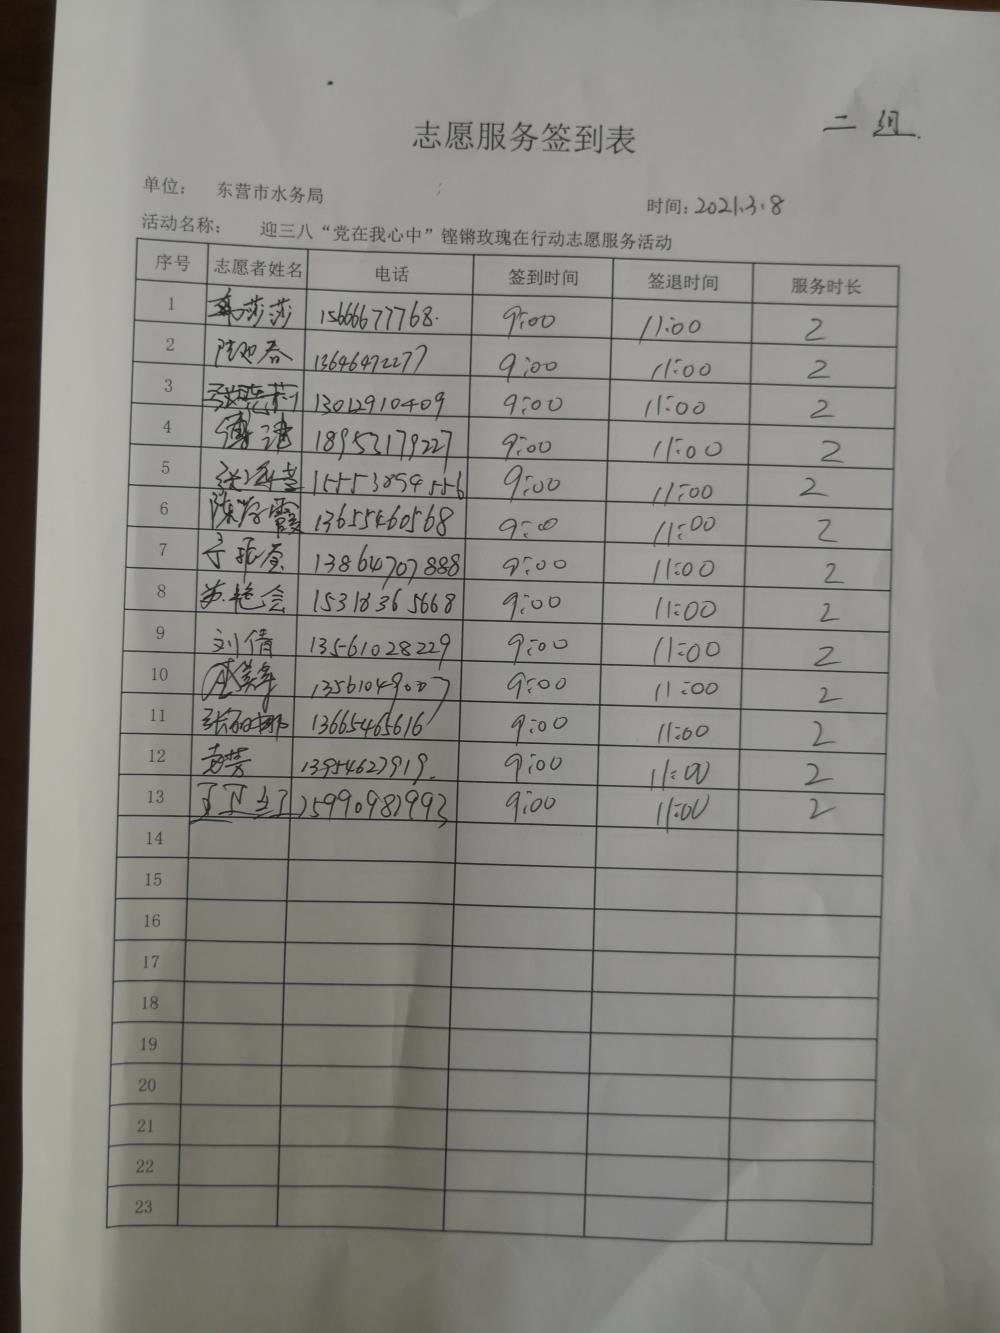 二组
志愿服务签到表
单位： 东营市水务局
时间：2021.3.8
活动名称： 迎三八“党在我心中”铿锵玫瑰在行动志愿服务活动
序号 志愿者姓名 电话 签到时间 签退时间 服务时长
1 莎莎 15666677768. 9:00 11:00 2
2 陆迎春 13646472277 9:00 11:00 2
3 13012910409 9:00 11:00 2
4 18953179227 9:00 11:00 2
5 9:00 11:00 2
6 陈 霞 13655460568 9:00 11:00 2
7 13864707888 9:00 11:00 2
8 艳会 15318365668 9:00 11:00 2
9 刘倩 13561028229 9:00 11:00 2
10 13561049007 9:00 11:00 2
11 张 娜 13665465616 9:00 11:00 2
12 13954627919. 9:00 11:00 2
13 9:00 11:00 2
14
15
16
17
18
19
20
21
22
23